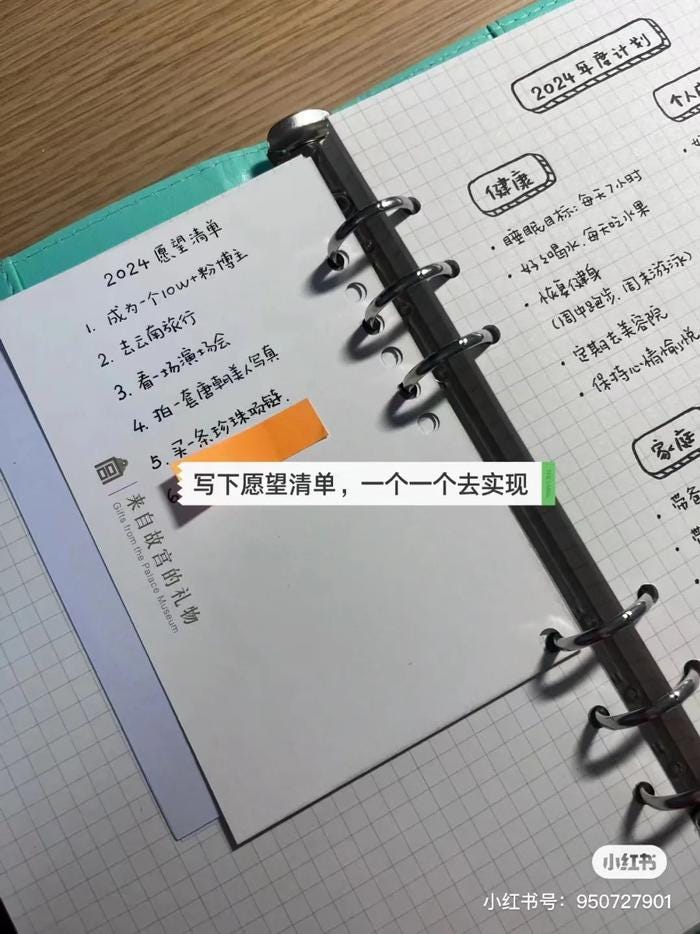 2024 愿望清单
1. 成为一个10W+粉博主
2. 去云南旅行
3. 看一场演场会
4. 拍一套唐朝美人写真
5. 买一条珍珠项链.
6
来自故宫的礼物
Gifts from the Palace Museum
写下愿望清单，一个一个去实现
2024年度计划
健康
· 睡眠目标：每天7小时
· 好好喝水.每天吃水果
· 恢复健身
(周中跑步.周末游泳)
· 定期去美容院
· 保持心情愉悦
个人
家庭
小红书
小红书号：950727901